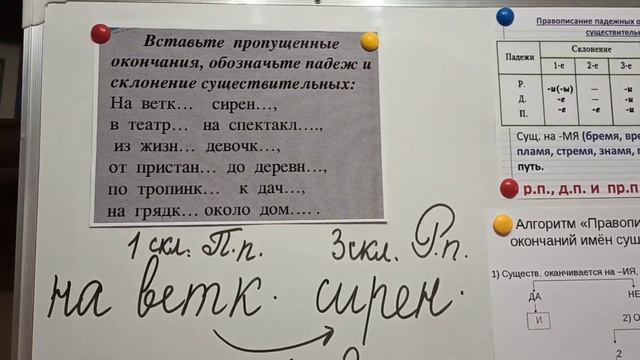 Вставьте пропущенные
окончания, обозначьте падеж и
склонение существительных:
На ветк… сирен…,
в театр… на спектакл….,
из жизн… девочк…,
от пристан… до деревн…,
по тропинк… к дач…,
на грядк… около дом…. .
1 скл. П.п. 3 скл. Р.п.
на ветк. сирен.
Правописание падежных о
существительн
Падежи Склонение
1-е 2-е 3-е
Р. -и(-ы) — -и
Д. -е — -и
П. -е -е -и
Сущ. на -МЯ (бремя, вре
пламя, стремя, знамя,
путь.
р.п., д.п. и пр.п
Алгоритм «Правопи
окончаний имён сущ
1) Существ. оканчивается на –ИЯ,
ДА НЕ
И 2) О
,2